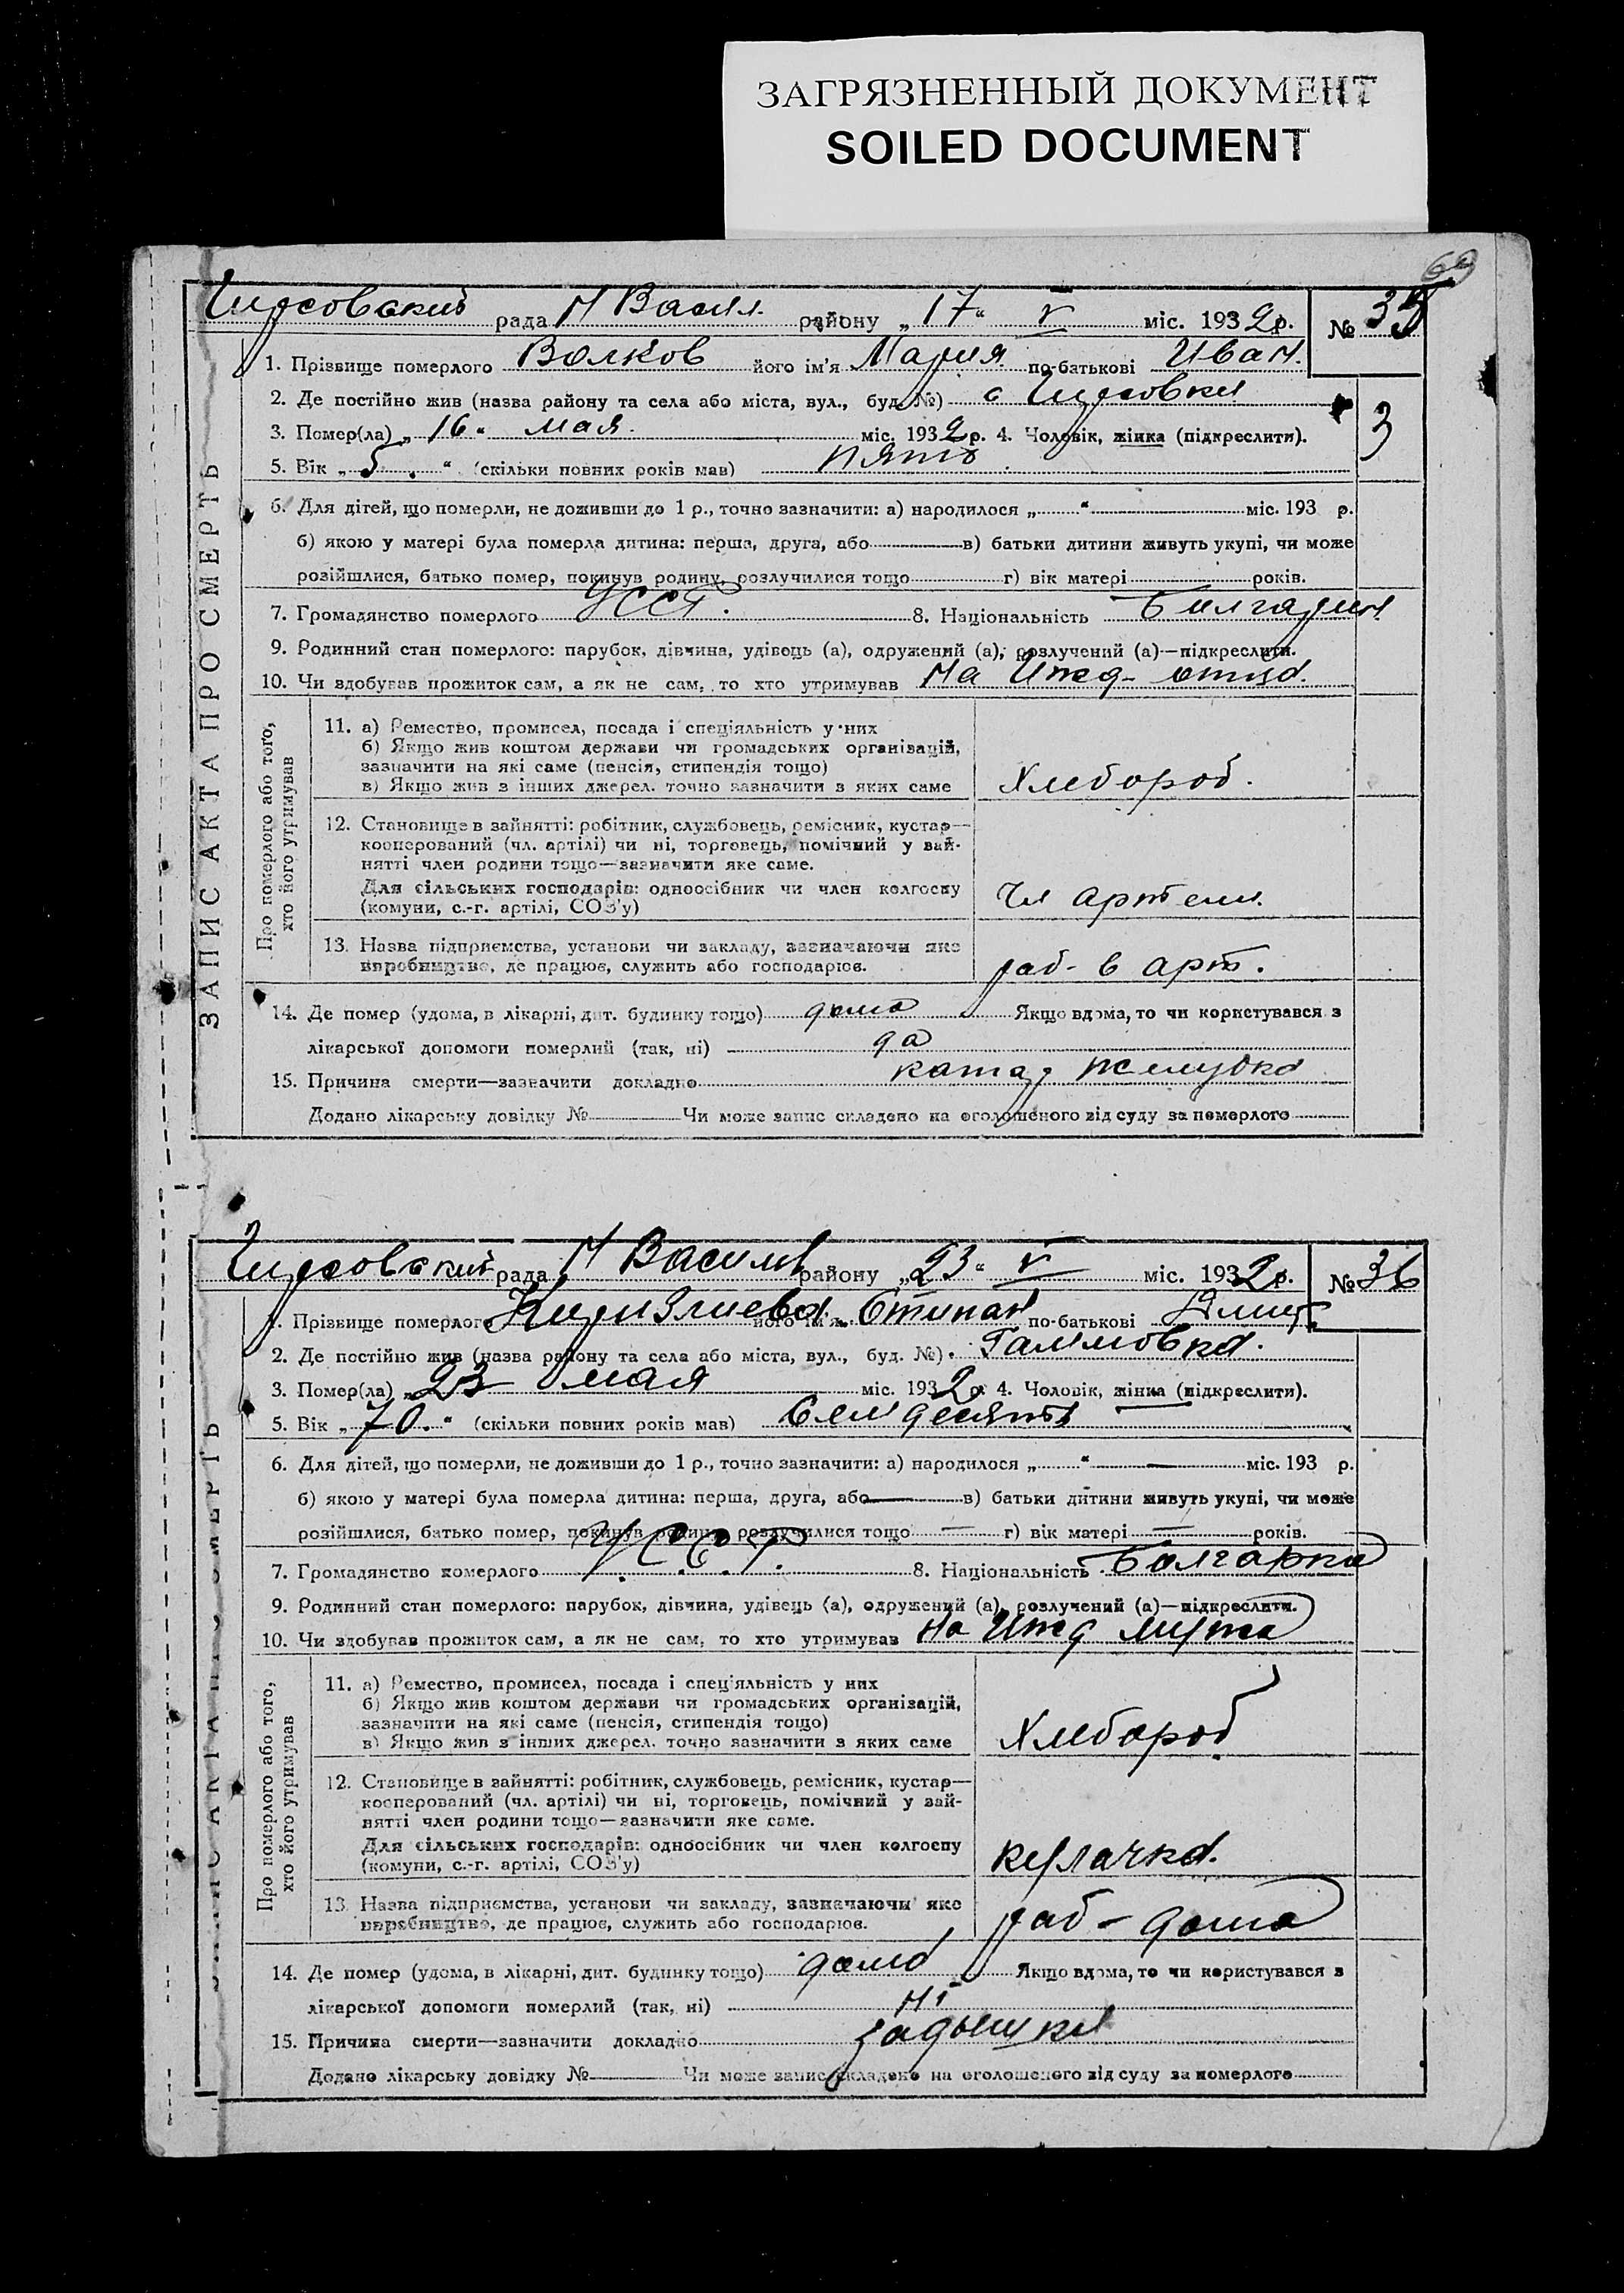 ЗАГРЯЗНЕННЫЙ ДОКУМЕНТ
SOILED DOCUMENT
69
рада Н Васил. району „17“ V міс. 1932 р. № 35
1. Прізвище померлого Волков його ім'я Мария по-батькові Иван.
2. Де постійно жив (назва району та села або міста, вул., буд. №) с
3. Помер(ла) „16“ мая міс. 1932 р. 4. Чоловік, жінка (підкреслити).
3
5. Вік „5.“ (скільки повних років мав) пять
6. Для дітей, що померли, не доживши до 1 р., точно зазначити: а) народилося „ “ міс. 193 р.
б) якою у матері була померла дитина: перша, друга, або в) батьки дитини живуть укупі, чи може
розійшлися, батько помер, покинув родину, розлучилися тощо г) вік матері років.
7. Громадянство померлого УССР. 8. Національність
9. Родинний стан померлого: парубок, дівчина, удівець (а), одружений (а), розлучений (а)—підкреслити.
10. Чи здобував прожиток сам, а як не сам, то хто утримував На Ижд- отца.
ЗАПИС АКТА ПРО СМЕРТЬ
Про померлого або того, хто його утримував
11. а) Ремество, промисел, посада і спеціяльність у них
б) Якщо жив коштом держави чи громадських організацій,
зазначити на які саме (пенсія, стипендія тощо)
в) Якщо жив з інших джерел, точно зазначити з яких саме
Хлебороб.
12. Становище в зайнятті: робітник, службовець, ремісник, кустар—
кооперований (чл. артілі) чи ні, торговець, помічний у зай-
нятті член родини тощо—зазначити яке саме.
Для сільських господарів: одноосібник чи член колгоспу
(комуни, с.-г. артілі, СОЗ'у)
Чл артели.
13. Назва підприємства, установи чи закладу, зазначаючи яке
виробництво, де працює, служить або господарює.
раб- в арт.
14. Де помер (удома, в лікарні, дит. будинку тощо) дома Якщо вдома, то чи користувався з
лікарської допомоги померлий (так, ні) да
15. Причина смерти—зазначити докладно катар желудка
Додано лікарську довідку № Чи може запис складено на оголошеного від суду за померлого
рада Н Васильев району „23“ V міс. 1932 р. № 36
1. Прізвище померлого його ім'я по-батькові
2. Де постійно жив (назва району та села або міста, вул., буд. №)
3. Помер(ла) „23 мая міс. 1932 р. 4. Чоловік, жінка (підкреслити).
5. Вік „70.“ (скільки повних років мав) Семдесять
6. Для дітей, що померли, не доживши до 1 р., точно зазначити: а) народилося „ “ — міс. 193 р.
б) якою у матері була померла дитина: перша, друга, або — в) батьки дитини живуть укупі, чи може
розійшлися, батько помер, покинув родину, розлучилися тощо — г) вік матері — років.
7. Громадянство померлого У.С.С.Р. 8. Національність Болгарка
9. Родинний стан померлого: парубок, дівчина, удівець (а), одружений (а), розлучений (а)—підкреслити.
10. Чи здобував прожиток сам, а як не сам, то хто утримував На Ижд мужа
ЗАПИС АКТА ПРО СМЕРТЬ
Про померлого або того, хто його утримував
11. а) Ремество, промисел, посада і спеціяльність у них
б) Якщо жив коштом держави чи громадських організацій,
зазначити на які саме (пенсія, стипендія тощо)
в) Якщо жив з інших джерел, точно зазначити з яких саме
Хлебороб
12. Становище в зайнятті: робітник, службовець, ремісник, кустар—
кооперований (чл. артілі) чи ні, торговець, помічний у зай-
нятті член родини тощо—зазначити яке саме.
Для сільських господарів: одноосібник чи член колгоспу
(комуни, с.-г. артілі, СОЗ'у)
кулачка.
13. Назва підприємства, установи чи закладу, зазначаючи яке
виробництво, де працює, служить або господарює.
раб- дома
14. Де помер (удома, в лікарні, дит. будинку тощо) дома Якщо вдома, то чи користувався з
лікарської допомоги померлий (так, ні) Ні
15. Причина смерти—зазначити докладно задышка
Додано лікарську довідку № Чи може запис складено на оголошеного від суду за померлого